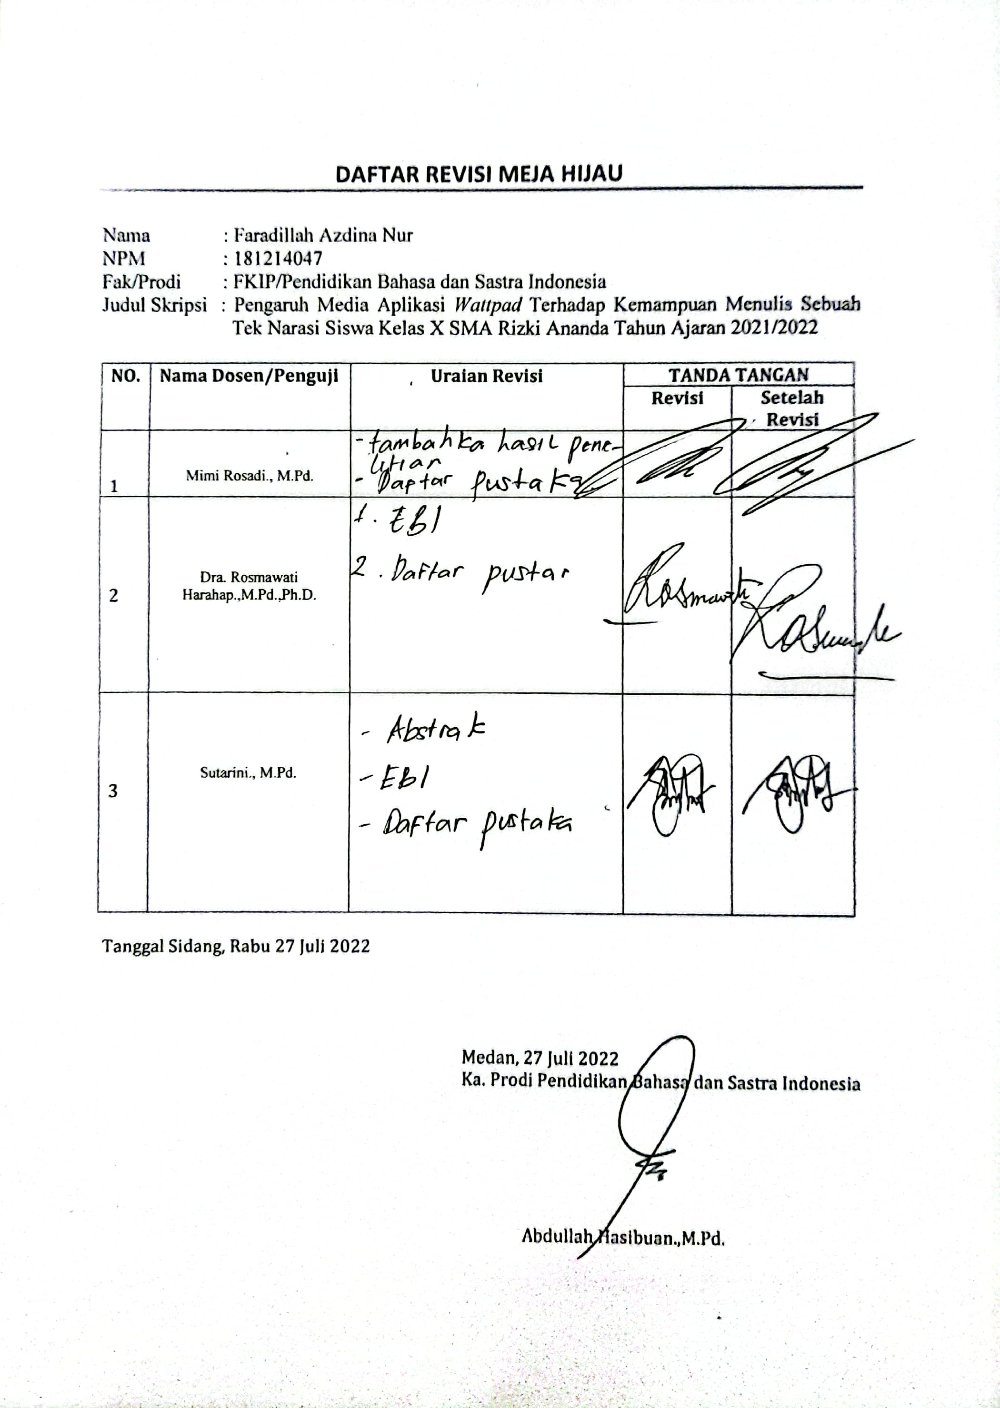 DAFTAR REVISI MEJA HIJAU
Nama : Faradillah Azdina Nur
NPM : 181214047
Fak/Prodi : FKIP/Pendidikan Bahasa dan Sastra Indonesia
Judul Skripsi : Pengaruh Media Aplikasi Wattpad Terhadap Kemampuan Menulis Sebuah
Tek Narasi Siswa Kelas X SMA Rizki Ananda Tahun Ajaran 2021/2022
NO. Nama Dosen/Penguji Uraian Revisi TANDA TANGAN
Revisi Setelah
Revisi
1 Mimi Rosadi., M.Pd.
- tambahka hasil pene-
litian
- Daptar pustaka
2 Dra. Rosmawati
Harahap.,M.Pd.,Ph.D.
1. EBI
2. Daftar pustar
Rosmawati
3 Sutarini., M.Pd.
- Abstrak
- EBI
- Daftar pustaka
Tanggal Sidang, Rabu 27 Juli 2022
Medan, 27 Juli 2022
Ka. Prodi Pendidikan Bahasa dan Sastra Indonesia
Abdullah Hasibuan.,M.Pd.